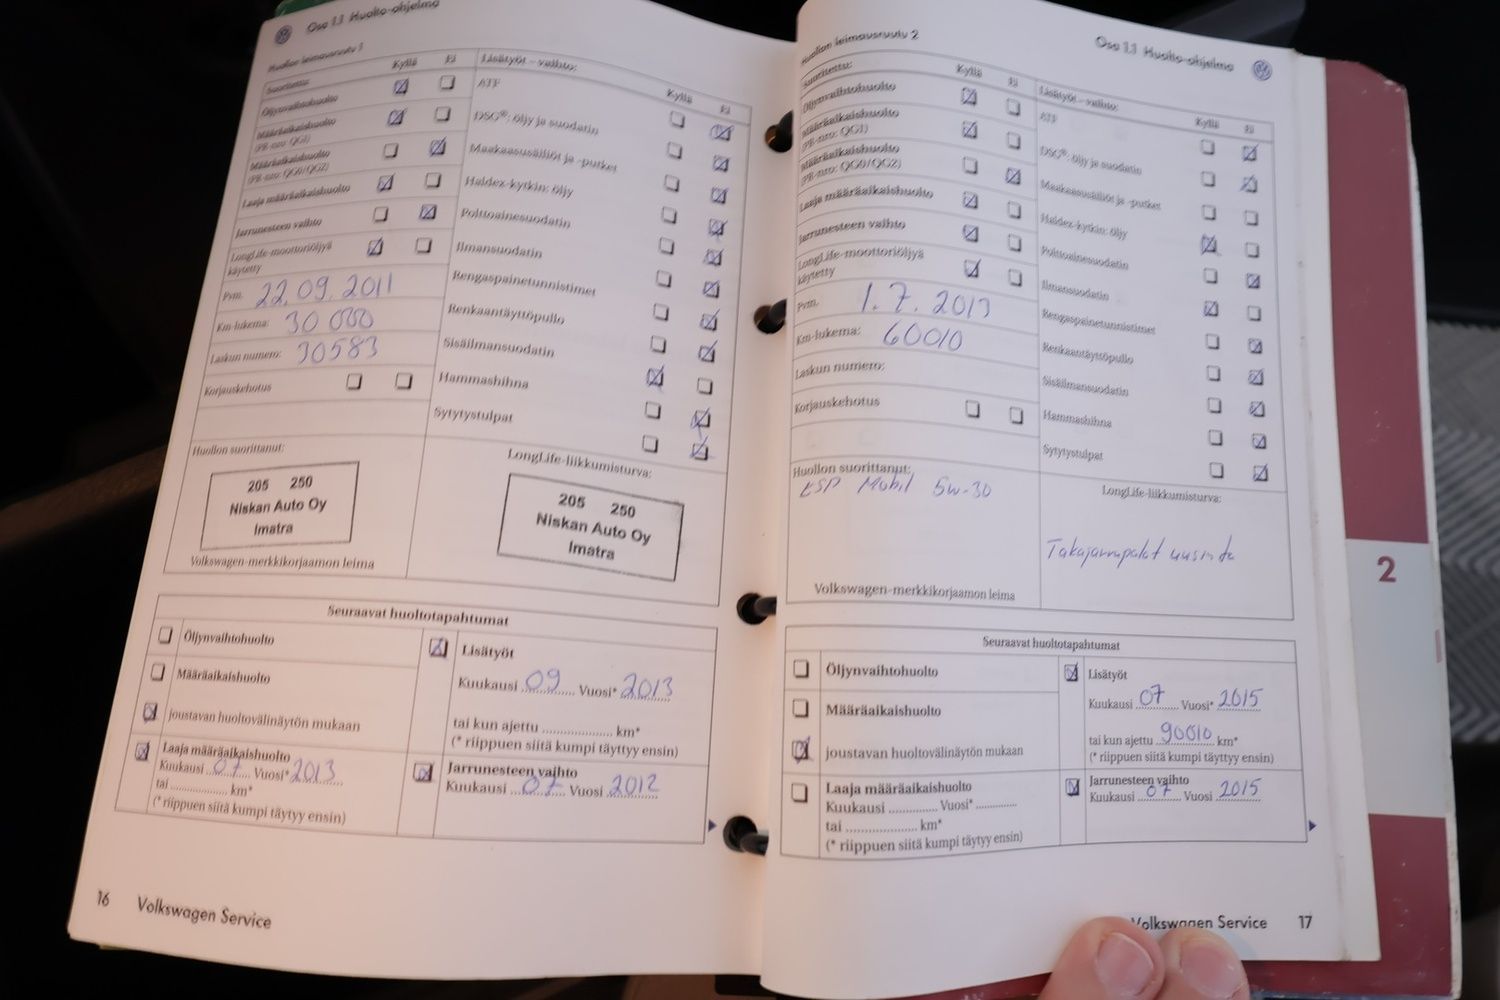 Osa 1.1 Huolto-ohjelma
Huollon leimausruutu 1
Suoritettu: Kyllä Ei
Öljynvaihtohuolto
Määräaikaishuolto
(PR-nro: QG1)
Määräaikaishuolto
(PR-nro: QG0/QG2)
Laaja määräaikaishuolto
Jarrunesteen vaihto
LongLife-moottoriöljyä
käytetty
Pvm. 22.09.2011
Km-lukema: 30 000
Laskun numero: 30583
Korjauskehotus
Lisätyöt – vaihto: Kyllä Ei
ATF
DSG®: öljy ja suodatin
Maakaasusäiliöt ja -putket
Haldex-kytkin: öljy
Polttoainesuodatin
Ilmansuodatin
Rengaspainetunnistimet
Renkaantäyttöpullo
Sisäilmansuodatin
Hammashihna
Sytytystulpat
Huollon suorittanut:
205 250
Niskan Auto Oy
Imatra
Volkswagen-merkkikorjaamon leima
LongLife-liikkumisturva:
205 250
Niskan Auto Oy
Imatra
Seuraavat huoltotapahtumat
Öljynvaihtohuolto
Määräaikaishuolto
joustavan huoltovälinäytön mukaan
Laaja määräaikaishuolto
Kuukausi 07 Vuosi* 2013
tai .................. km*
(* riippuen siitä kumpi täytyy ensin)
Lisätyöt
Kuukausi 09 Vuosi* 2013
tai kun ajettu .................. km*
(* riippuen siitä kumpi täytyy ensin)
Jarrunesteen vaihto
Kuukausi 07 Vuosi 2012
16 Volkswagen Service
Osa 1.1 Huolto-ohjelma
Huollon leimausruutu 2
Suoritettu: Kyllä Ei
Öljynvaihtohuolto
Määräaikaishuolto
(PR-nro: QG1)
Määräaikaishuolto
(PR-nro: QG0/QG2)
Laaja määräaikaishuolto
Jarrunesteen vaihto
LongLife-moottoriöljyä
käytetty
Pvm. 1.7.2013
Km-lukema: 60010
Laskun numero:
Korjauskehotus
Lisätyöt – vaihto: Kyllä Ei
ATF
DSG®: öljy ja suodatin
Maakaasusäiliöt ja -putket
Haldex-kytkin: öljy
Polttoainesuodatin
Ilmansuodatin
Rengaspainetunnistimet
Renkaantäyttöpullo
Sisäilmansuodatin
Hammashihna
Sytytystulpat
Huollon suorittanut:
ESP Mobil 5w-30
Volkswagen-merkkikorjaamon leima
LongLife-liikkumisturva:
Takajarrupalat uusinta
Seuraavat huoltotapahtumat
Öljynvaihtohuolto
Määräaikaishuolto
joustavan huoltovälinäytön mukaan
Laaja määräaikaishuolto
Kuukausi ............. Vuosi* .............
tai .................. km*
(* riippuen siitä kumpi täytyy ensin)
Lisätyöt
Kuukausi 07 Vuosi* 2015
tai kun ajettu 90010 km*
(* riippuen siitä kumpi täytyy ensin)
Jarrunesteen vaihto
Kuukausi 07 Vuosi 2015
Volkswagen Service 17
2